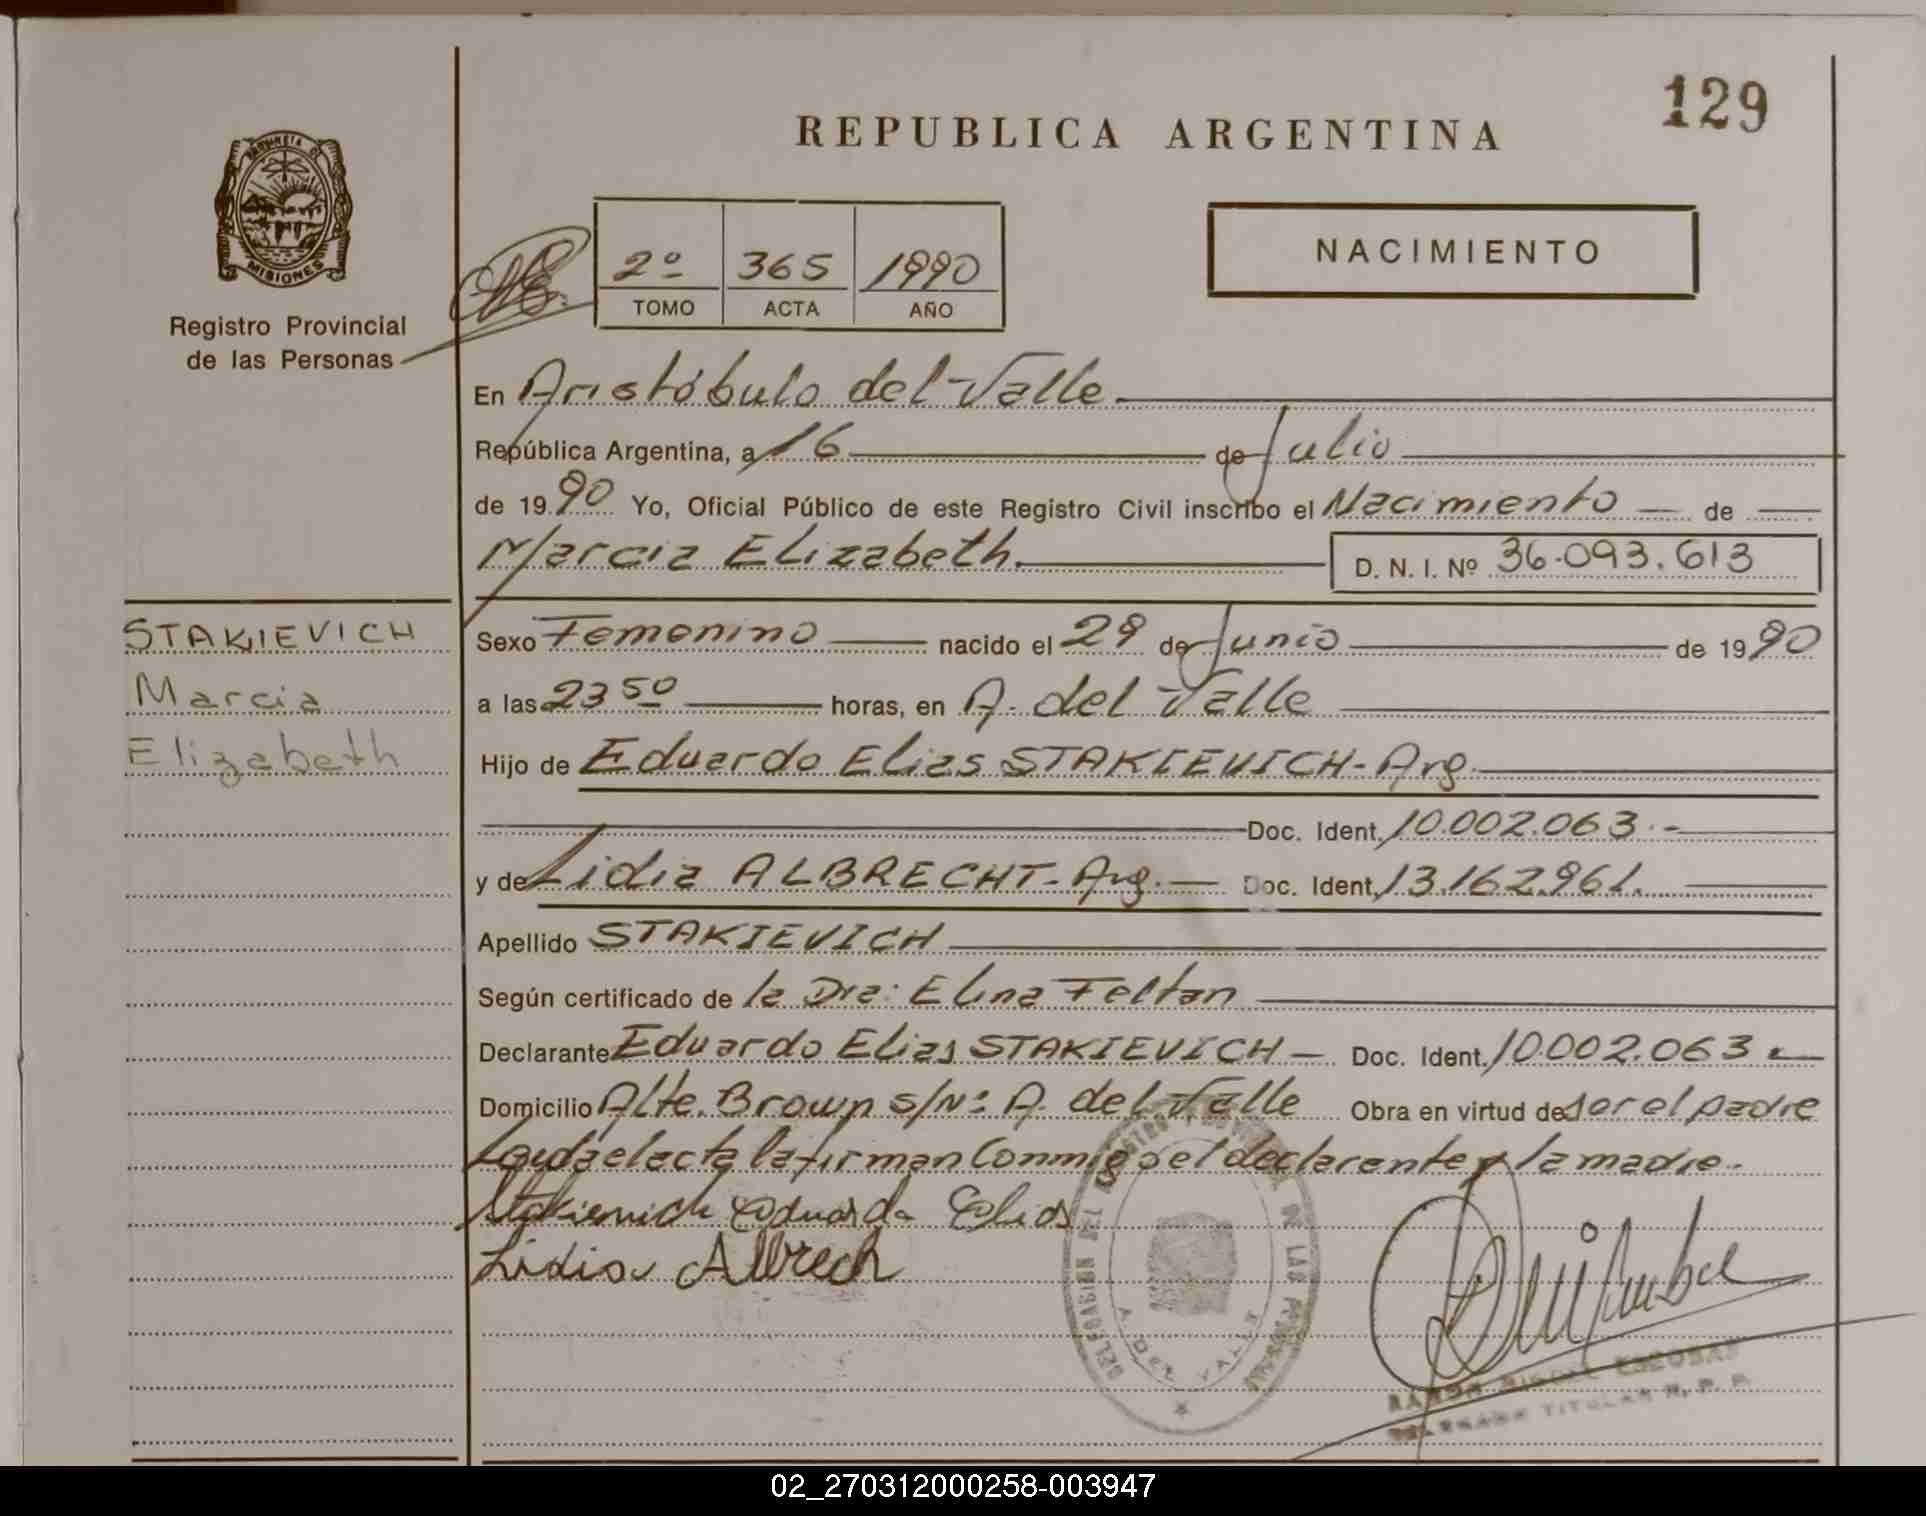 129
REPUBLICA ARGENTINA
PROVINCIA DE
MISIONES
Registro Provincial
de las Personas
2º 365 1990
TOMO ACTA AÑO
NACIMIENTO
En Aristóbulo del Valle
República Argentina, a 16 de Julio
de 1990 Yo, Oficial Público de este Registro Civil inscribo el Nacimiento de
Marcia Elizabeth. D. N. I. Nº 36.093.613
STAKIEVICH
Marcia
Elizabeth
Sexo Femenino nacido el 29 de Junio de 1990
a las 23 50 horas, en A. del Valle
Hijo de Eduardo Elias STAKIEVICH - Arg.
Doc. Ident. 10.002.063.-
y de Lidia ALBRECHT - Arg. Doc. Ident. 13.162.961.
Apellido STAKIEVICH
Según certificado de la Dra: Elina Feltan
Declarante Eduardo Elias STAKIEVICH - Doc. Ident. 10.002.063.
Domicilio Alte. Brown s/Nº A. del Valle Obra en virtud de ser el padre
Leída el acta la firman Conmigo el declarante y la madre.
Stakievich Eduardo Elias
Lidia Albrech
DELEGACION DEL REGISTRO PROVINCIAL DE LAS PERSONAS
A. DEL VALLE
RAMON MIGUEL ESCOBAR
DELEGADO TITULAR R. P. P.
02_270312000258-003947